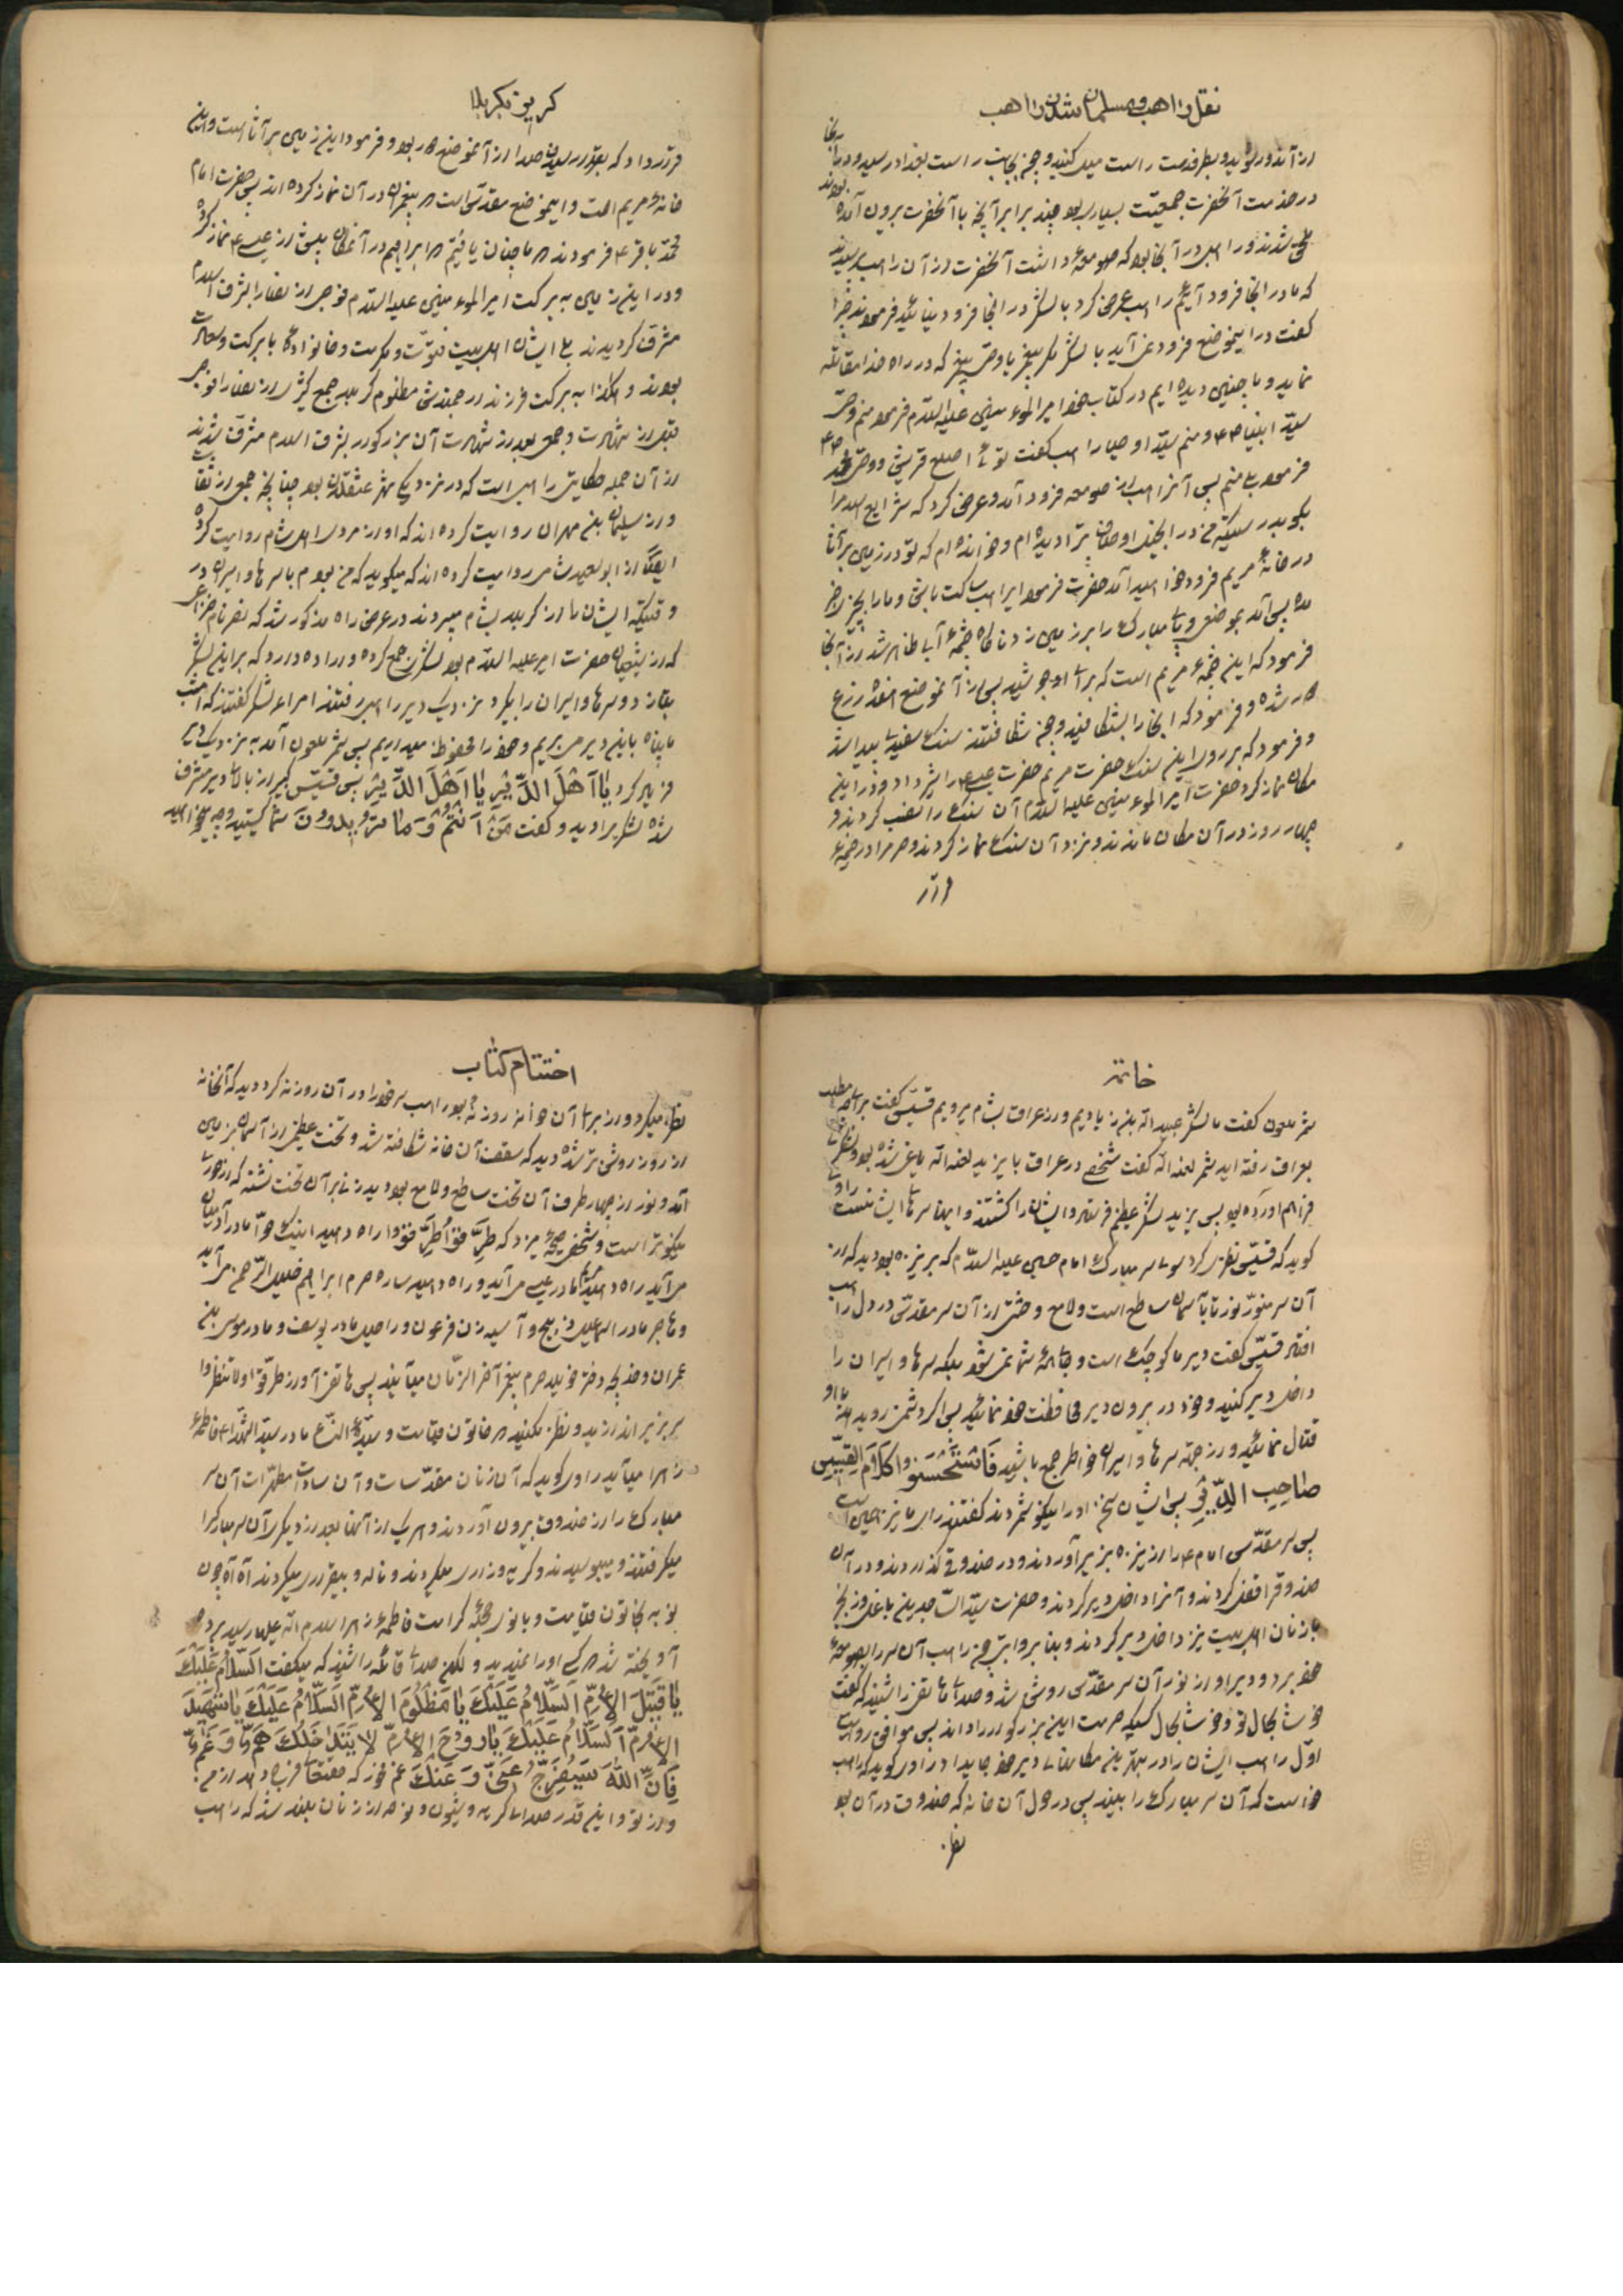 نقل راهب و مسلمان شدن راهب
در خدمت آنحضرت جمعیت بسیار بود چند برابر آنچه با آنحضرت بیرون آمده بودند
که ما در اینجا فرود آئیم راهب عرض کرد با لشکر در اینجا فرود نیائید فرمودند چرا
گفت در این موضع فرود نمی آید با لشکر مگر پیغمبر یا وصی پیغمبر که در راه خدا مقاتله
نماید و ما چنین دیده ایم در کتاب خود امیر المؤمنین علیه السلام فرمود منم وصی
سید انبیا و منم سید اوصیا راهب گفت توئی اصلع قریش و وصی محمد
فرمود بلی منم پس آنراهب از صومعه فرود آمد و عرض کرد که شرایع اسلام را
بگو بدرستیکه من در انجیل اوصاف ترا دیده ام و خوانده ام که تو در زمین براثا
در خانه مریم فرود خواهید آمد حضرت فرمود ایراهب ساکت باش و ما را بچیزی خبر
مده پس آمد بموضعی و پای مبارک را بر زمین زد ناگاه چشمه آبی ظاهر شد
فرمود که این چشمه مریم است که برای او جوشید پس از آنموضع هفده زرع
و فرمود که اینجا را بشکافید و چون شکافتند سنگ سفیدی پیدا شد
و فرمود که بر روی این سنگ حضرت مریم حضرت عیسی را شیر داد و در این
مکان نماز کرد حضرت امیر المؤمنین علیه السلام آن سنگ را نصب کردند و
چهار روز در آن مکان ماندند و نزد آن سنگ نماز کردند و حرم را در خیمه
قرار
گریز بکربلا
قرار داد که بقدر رسیدن صدا از آنموضع دور بود و فرمود این زمین براثا است و این
خانه مریم است و این موضع مقدسی است که پیغمبران در آن نماز کرده اند پس حضرت امام
محمد باقر فرمودند که ما چنان یافتیم که ابراهیم در آنمکان پیش از عیسی نماز کرده
و در این زمین به برکت امیر المؤمنین علیه السلام فوجی از نصارا بشرف اسلام
مشرف گردیدند بلی ایشان اهلبیت نبوت و کرامت و خانوادگی با برکت و سعادت
بودند و هکذا به برکت فرزند ارجمندش مظلوم کربلا جمع کثیری از نصارا فوجی
قبل از شهادت و جمعی بعد از شهادت آن بزرگوار بشرف اسلام مشرف شدند
از آن جمله حکایت راهبی است که در نزدیکی شهر عسقلان بود چنانچه جمعی از ثقات
و از سلیمان بن مهران روایت کرده اند که او از مردی اهل شام روایت کرده
ایضا از ابو سعید شامی روایت کرده اند که میگوید که من بودم با سرها و اسیران در
وقتیکه ایشان را از کربلا بشام میبردند در عرض راه مذکور شد که نصر نام خزاعی
که از شیعیان حضرت امیر علیه السلام بود لشکری جمع کرده و اراده دارد که بر این لشکر
بتازد و سرها و اسیران را بگیرد نزدیک دیر راهبی رفتند امراء لشکر گفتند که امشب
پناه باین دیر می بریم و خود را محفوظ میداریم پس شمر ملعون آمد به نزدیک دیر
فریاد کرد یا اَهْلَ الدَّیْرِ یا اَهْلَ الدَّیْرِ پس قسیس کبیر از بالای دیر مشرف
شده لشکر را دید و گفت مَنْ اَنْتُمْ وَ ما تُریدُونَ شما کیستید و چه میخواهید
خاتمه
شمر ملعون گفت ما لشکر عبید الله بن زیادیم و از عراق بشام میرویم قسیس گفت برای چه مطلب
بعراق رفته اید شمر لعنه الله گفت شخصی در عراق با یزید لعنه الله یاغی شده بود
فراهم آورده بود پس یزید لشکر عظیم فرستاد و ایشان را کشتند و اینها سرهای ایشانست راوی
گوید که قسیس نظر کرد بسوی سر مبارک امام حسین علیه السلام که بر نیزه بود دید که از
آن سر منور نوری تا بآسمان ساطع است و لامع و خشیتی از آن سر مقدس در دل راهب
افتاد قسیس گفت دیر ما کوچک است و جای همه شما نمی شود بلکه سرها و اسیران را
داخل دیر کنید و خود در بیرون دیر محافظت خود نمائید پس اگر دشمن روید با او
قتال نمائید و از جهة سرها و اسیران خاطر جمع باشید فَاسْتَحْسَنُوا کَلامَ القِسّیسِ
صاحِبِ الدَّیْرِ پس ایشان سخن او را نیکو شمردند گفتند رای ما نیز همین است
پس سر مقدس امام را از نیزه بزیر آوردند و در صندوقی گذاردند و در آن
صندوق را قفل کردند و آنرا داخل دیر کردند و حضرت سید الساجدین با غل و زنجیر
با زنان اهلبیت نیز داخل دیر کردند و بنا بر روایتی چون راهب آن سر را بصومعه
خود برد و دیر او از نور آن سر مقدس روشن شد و صدای هاتفی را شنید که گفت
خوشا بحال تو و خوشا بحال کسیکه حرمت این بزرگوار را داند پس موافق روایت
اول راهب ایشان را در بهترین مکانهای دیر خود جای داد راوی گوید که راهب
خواست که آن سر مبارک را ببیند پس در حول آن خانه که صندوق در آن بود
نظر
اختتام کتاب
نظر میکرد و از برای آن خانه روزنه بود راهب سر خود را در آن روزنه کرد دید که آنخانه
از نور روشن تر شده دید که سقف آن خانه شکافته شد و تختی عظیم از آسمان بزمین
آمد و نور از چهار طرف آن تخت ساطع و لامع بود و دید زنی بر آن تخت نشسته که از حوریان
نیکوتر است و شخصی صیحه میزد که طَرِّقُوا طَرِّقُوا راه دهید اینک حوا مادر آدمیان
می آید راه دهید مریم مادر عیسی می آید و راه دهید ساره حرم ابراهیم خلیل الرحمن می آید
و هاجر مادر اسماعیل ذبیح و آسیه زن فرعون و راحیل مادر یوسف و مادر موسی بن
عمران و خدیجه دختر خویلد حرم پیغمبر آخر الزمان میآیند پس هاتفی آواز داد
سر بزیر اندازید و نظر نکنید که خاتون قیامت و سیدة النساء مادر سید الشهداء فاطمه
زهرا میآید راوی گوید که آن زنان مقدسات و آن سادات مطهرات آن سر
مبارک را از صندوق بیرون آوردند و هر یک از آنها بعد از دیگری آن سر مبارک را
میگرفتند و میبوسیدند و گریه و زاری میکردند و ناله و بیقراری میکردند آه آه چون
نوبه بخاتون قیامت و بانوی حجله کرامت فاطمه زهرا سلام الله علیها رسید پرده
آویخته شد که کسی او را نمیدید و لکن صدای قائله را شنید که میگفت اَلسَّلامُ عَلَیْکَ
یا قَتیلَ الاُمِّ اَلسَّلامُ عَلَیْکَ یا مَظْلُومَ الاُمِّ اَلسَّلامُ عَلَیْکَ یا شَهیدَ
الاُمِّ اَلسَّلامُ عَلَیْکَ یا رُوحَ الاُمِّ لا یَتَداخَلُکَ هَمٌّ وَ غَمٌّ
فَاِنَّ اللهَ سَیُفَرِّجُ عَنّی وَ عَنْکَ غم مخور که حقتعالی فرج دهد از من
و از تو و این قدر صدای گریه و شیون و نوحه از زنان بلند شد که راهب